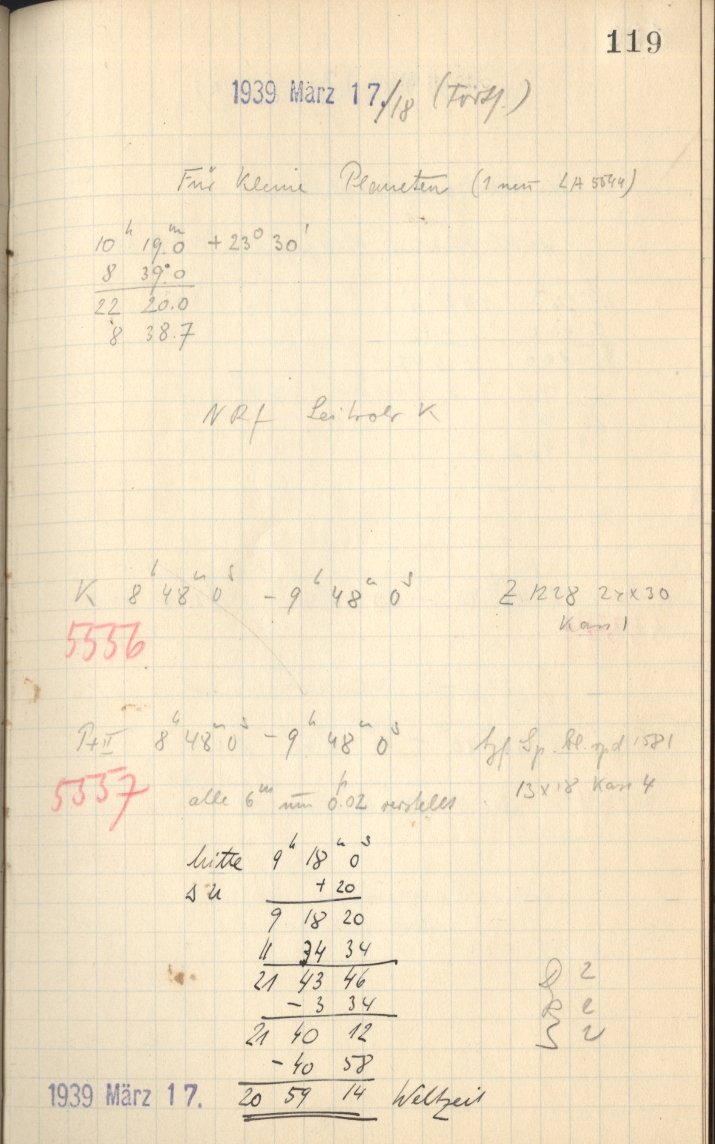 119
1939 März 17./18 (Forts.)
Für Kleine Planeten (1 neu LA 5544)
10ʰ 19ᵐ.0 +23⁰ 30'
8 39.0
22 20.0
8 38.7
NRf Leitrohr K
K 8ʰ 48ᵐ 0ˢ – 9ʰ 48ᵐ 0ˢ Z 1228 24x30
Kass 1
5556
P+II 8ʰ 48ᵐ 0ˢ – 9ʰ 48ᵐ 0ˢ Agf. Sp. Bl. rpd 1581
13x18 Kass 4
5557
alle 6ᵐ um 0.02 verstellt
Mitte 9ʰ 18ᵐ 0ˢ
Δu +20
9 18 20
11 34 34
21 43 46
-3 34
21 40 12
-40 58
1939 März 17. 20 59 14 Weltzeit
D 2
R 2
S 2